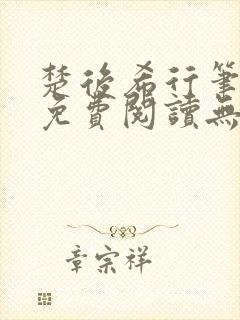 楚後希行筆
免費閱讀無
章宗祥